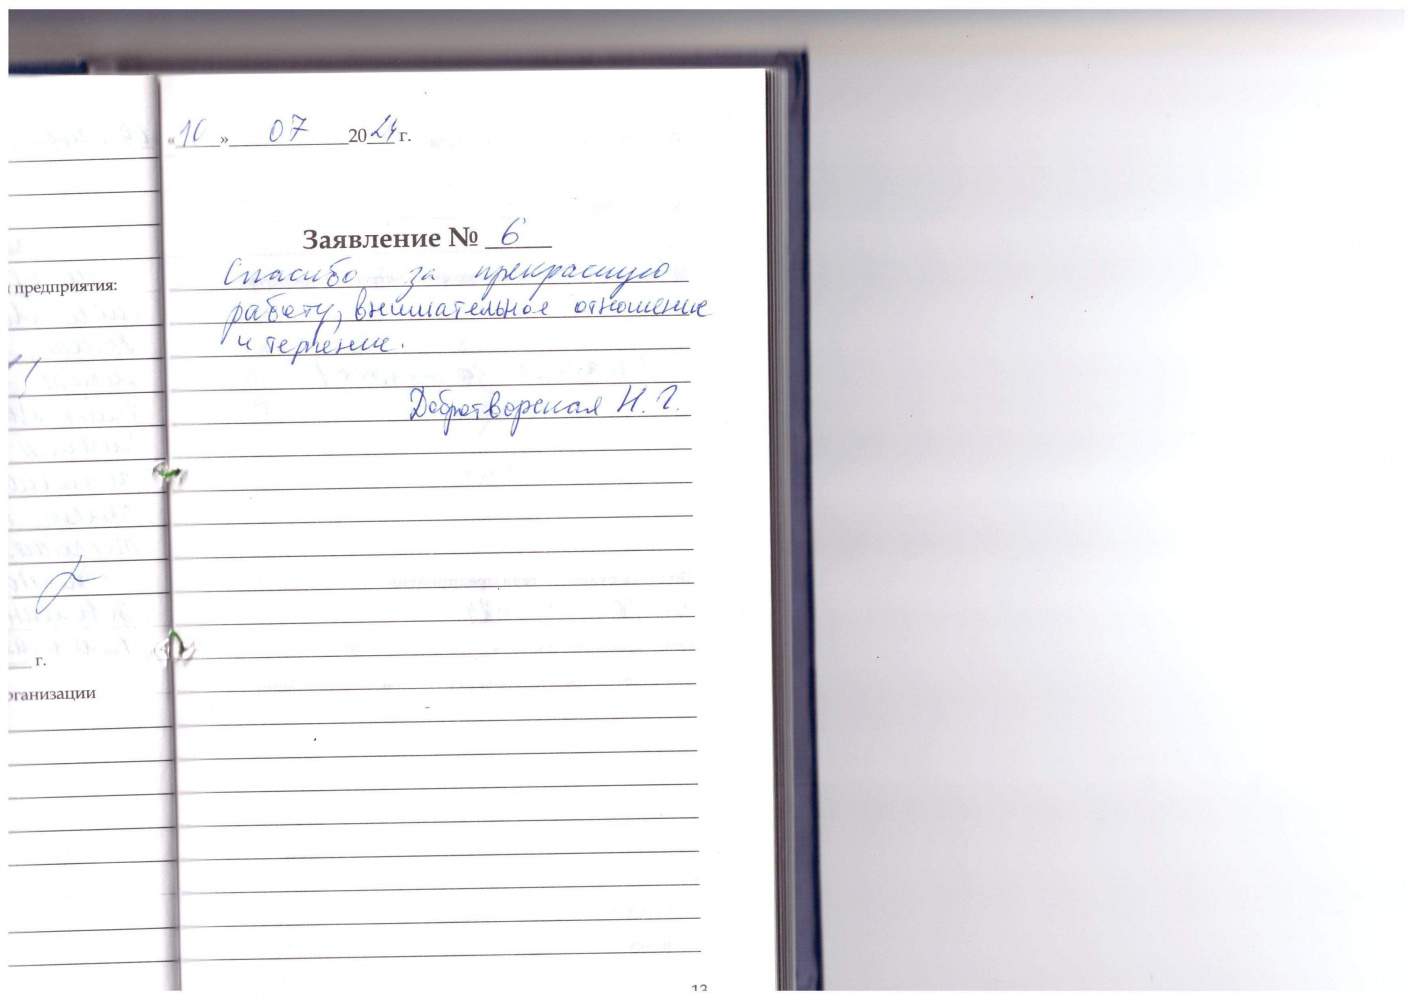 «10» 07 2024 г.
Заявление № 6
Спасибо за прекрасную
работу, внимательное отношение
и терпение.
Добротворская Н. Г.
предприятия:
г.
организации
13